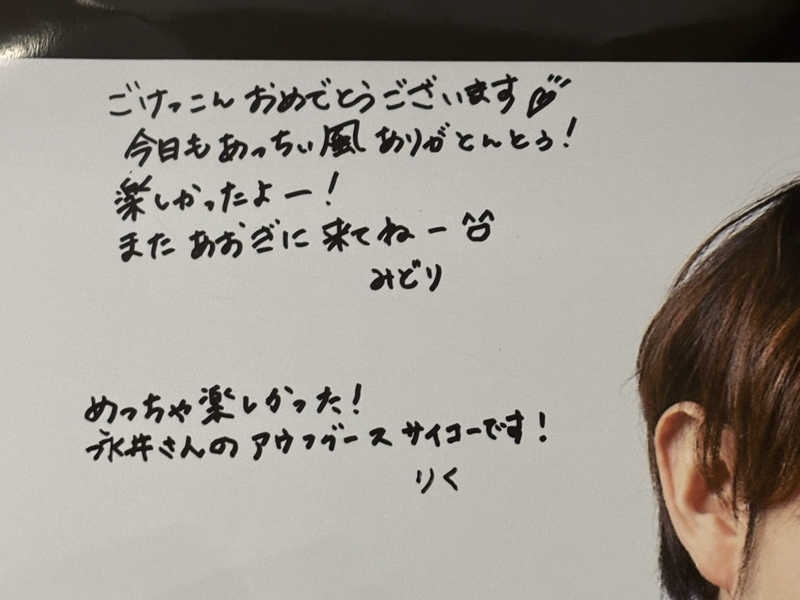 ごけっこん おめでとうございます♡
今日も あっちぃ風 ありがとんとう!
楽しかったよー!
また あおぎに 来てねー
みどり
めっちゃ楽しかった!
永井さんの アウフグース サイコーです!
りく